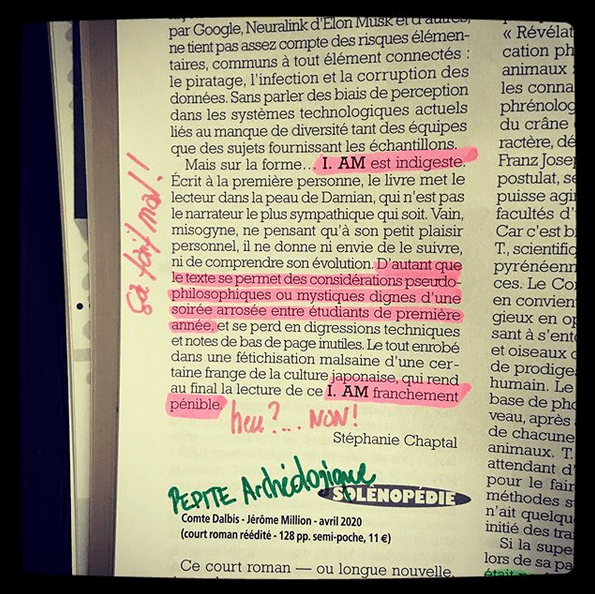 par Google, Neuralink d'Elon Musk et d'autres,
ne tient pas assez compte des risques élémen-
taires, communs à tout élément connectés :
le piratage, l'infection et la corruption des
données. Sans parler des biais de perception
dans les systèmes technologiques actuels
liés au manque de diversité tant des équipes
que des sujets fournissant les échantillons.
Mais sur la forme… I. AM est indigeste.
Écrit à la première personne, le livre met le
lecteur dans la peau de Damian, qui n'est pas
le narrateur le plus sympathique qui soit. Vain,
misogyne, ne pensant qu'à son petit plaisir
personnel, il ne donne ni envie de le suivre,
ni de comprendre son évolution. D'autant que
le texte se permet des considérations pseudo-
philosophiques ou mystiques dignes d'une
soirée arrosée entre étudiants de première
année, et se perd en digressions techniques
et notes de bas de page inutiles. Le tout enrobé
dans une fétichisation malsaine d'une cer-
taine frange de la culture japonaise, qui rend
au final la lecture de ce I. AM franchement
pénible.
heu?... NON!
Stéphanie Chaptal
ça fait mal!!
PEPITE Archéologique
SOLÉNOPÉDIE
Comte Dalbis - Jérôme Million - avril 2020
(court roman réédité - 128 pp. semi-poche, 11 €)
Ce court roman — ou longue nouvelle,
« Révélat
cation ph
animaux »
les conna
phrénolog
du crâne
ractère, dé
Franz Jose
postulat, se
puisse agi
facultés d'
Car c'est b
T., scientific
pyrénéenn
ces. Le Con
en convien
gieux en op
sant à s'ent
et oiseaux d
de prodige
humain. Le
base de pho
veau, après
de chacune
animaux. T.
attendait d'
pour le fair
méthodes s
n'ait quelqu
initié des tra
Si la supe
lors de sa pa
était